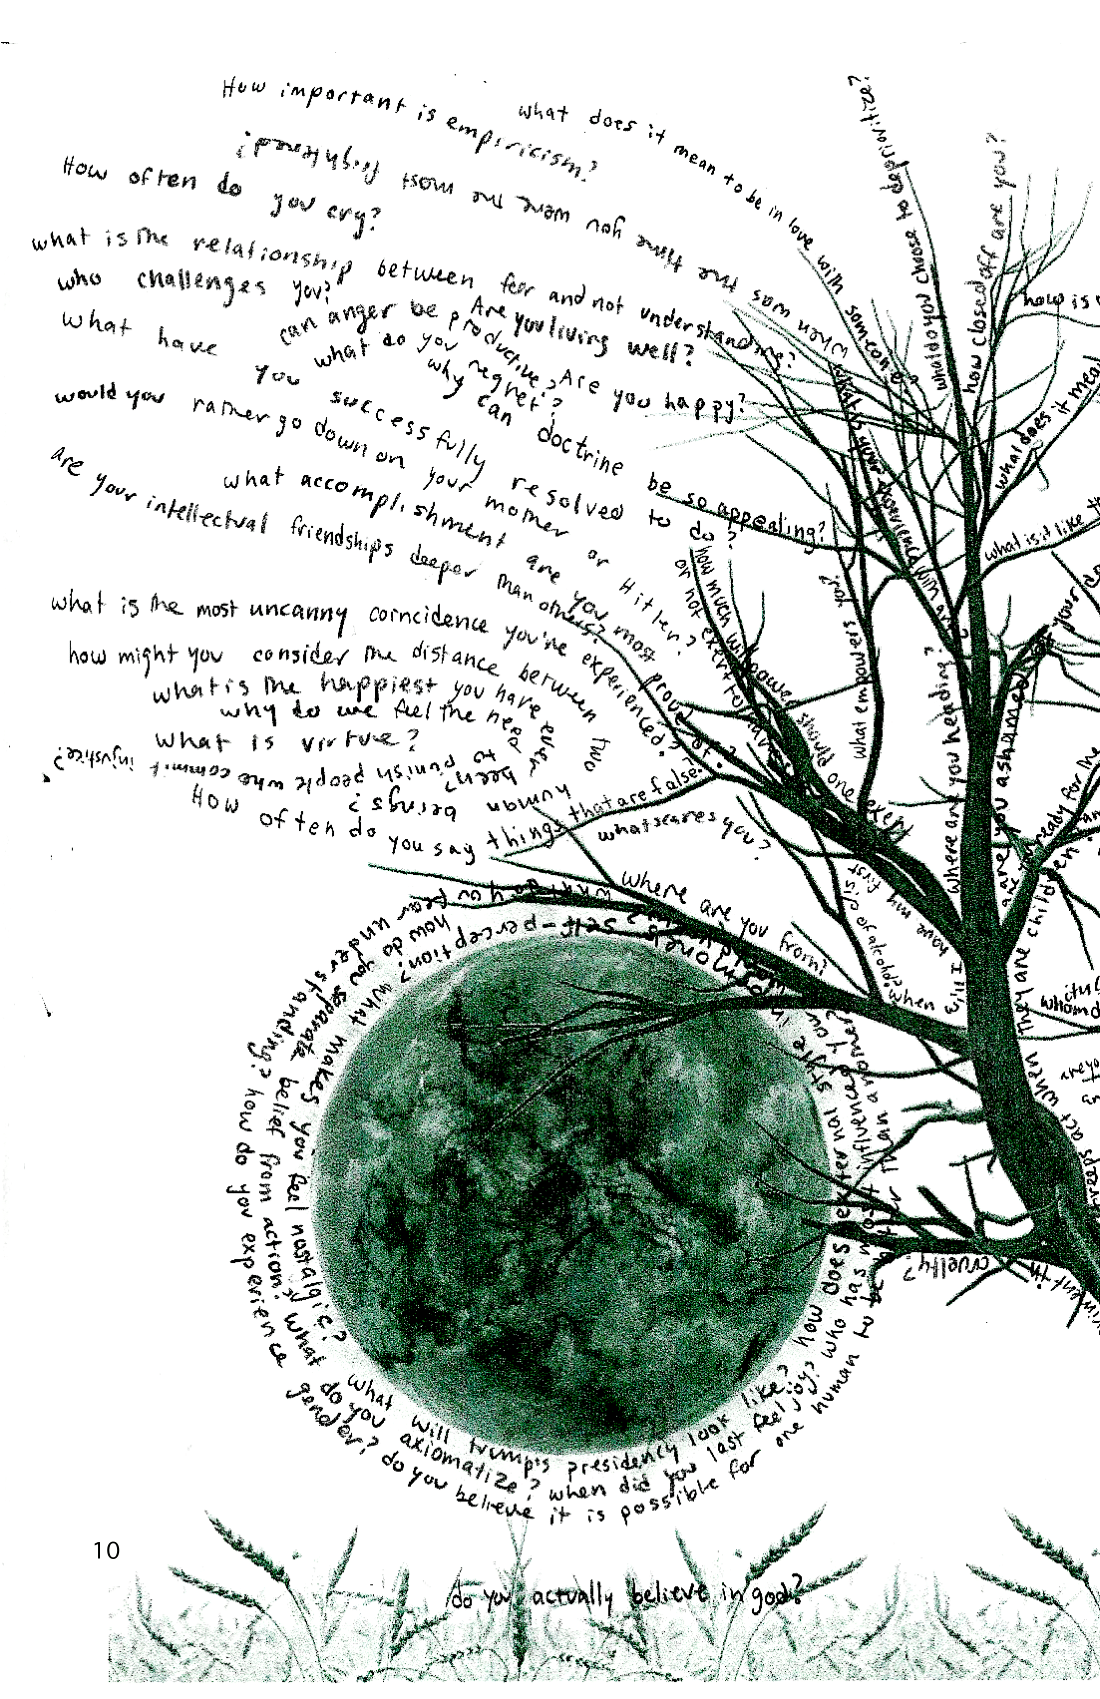 How important is empiricism?
what does it mean to be in love with someone?
when was the time you were the most frightened?
How often do you cry?
what is the relationship between fear and not understanding?
who challenges you?
can anger be productive?
Are you living well?
what do you regret?
Are you happy?
what have you successfully resolved to do?
why can doctrine be so appealing?
would you rather go down on your mother or Hitler?
what accomplishment are you most proud of?
are your intellectual friendships deeper than others?
what is the most uncanny coincidence you've experienced?
how might you consider the distance between two human beings?
what is the happiest you have ever been?
why do we feel the need to punish people who commit injustice?
what is virtue?
How often do you say things that are false?
what scares you?
where are you from?
what do you choose to deprioritize?
how closed off are you?
how is
what does it mea
what is it like
what is your experience with art?
how much willpower should one exert
or not exert
what empowers you?
where are you heading?
are you ashamed
your
are you ready for the
when they are children
have my first
when
whom
act when
cruelty?
what do you fear
how do you separate belief from action?
what makes you feel nostalgic?
self-perception?
understanding? how do you experience gender?
what do you axiomatize?
what will trump's presidency look like?
how does external style
when did you last feel joy?
who has most influenced you
do you believe it is possible for one human to be better than another
10
do you actually believe in god?